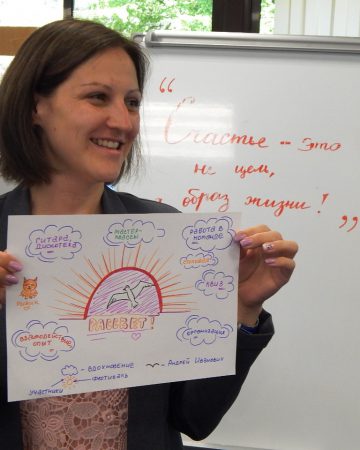 “
Счастье -- это
не цель,
образ жизни!
”
ГИТАРА,
ДИСКОТЕКА
МАСТЕР-
КЛАССЫ
РАБОТА В
КОМАНДЕ
КВИЗ
РАССВЕТ!
ВЗАИМОДЕЙСТВИЕ,
ОПЫТ
ОРГАНИЗАЦИЯ
- ВДОХНОВЕНИЕ
ФЕСТИВАЛЬ
УЧАСТНИКИ
- АНДРЕЙ ИВАНОВИЧ